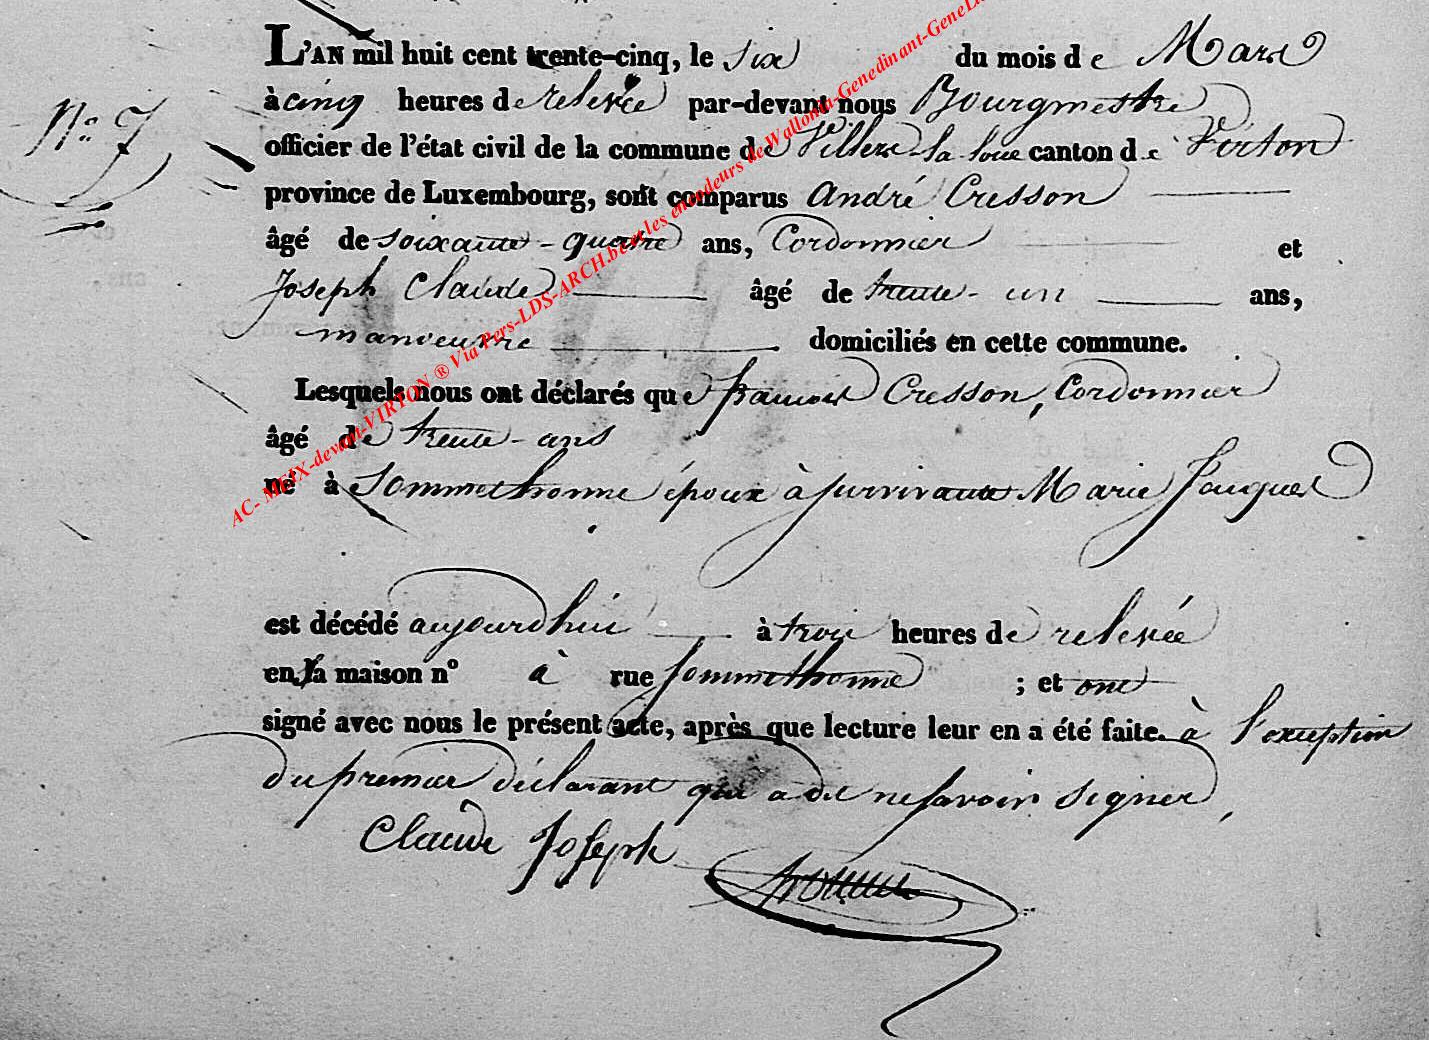 L'AN mil huit cent trente-cinq, le six du mois de Mars
N.° 7
à cinq heures de relevée par-devant nous Bourgmestre
officier de l'état civil de la commune de Villers-la-loue canton de Virton
province de Luxembourg, sont comparus André Cresson
âgé de soixante-quatre ans, Cordonnier et
Joseph Claude âgé de trente-un ans,
manoeuvre domiciliés en cette commune.
Lesquels nous ont déclarés que francois Cresson, Cordonnier
âgé de trente-ans
né à Sommethonne époux à survivante Marie Jacques
est décédé aujourdhui à trois heures de relevée
en la maison n° à rue Sommethonne ; et ont
signé avec nous le présent acte, après que lecture leur en a été faite. à l'exception
du premier déclarant qui a dit ne savoir signer,
Claude Joseph
AC- MEIX-devant-VIRTON ® Via Pers-LDS-ARCH.be et les encodeurs de Wallonia-Genedinant-GeneLux